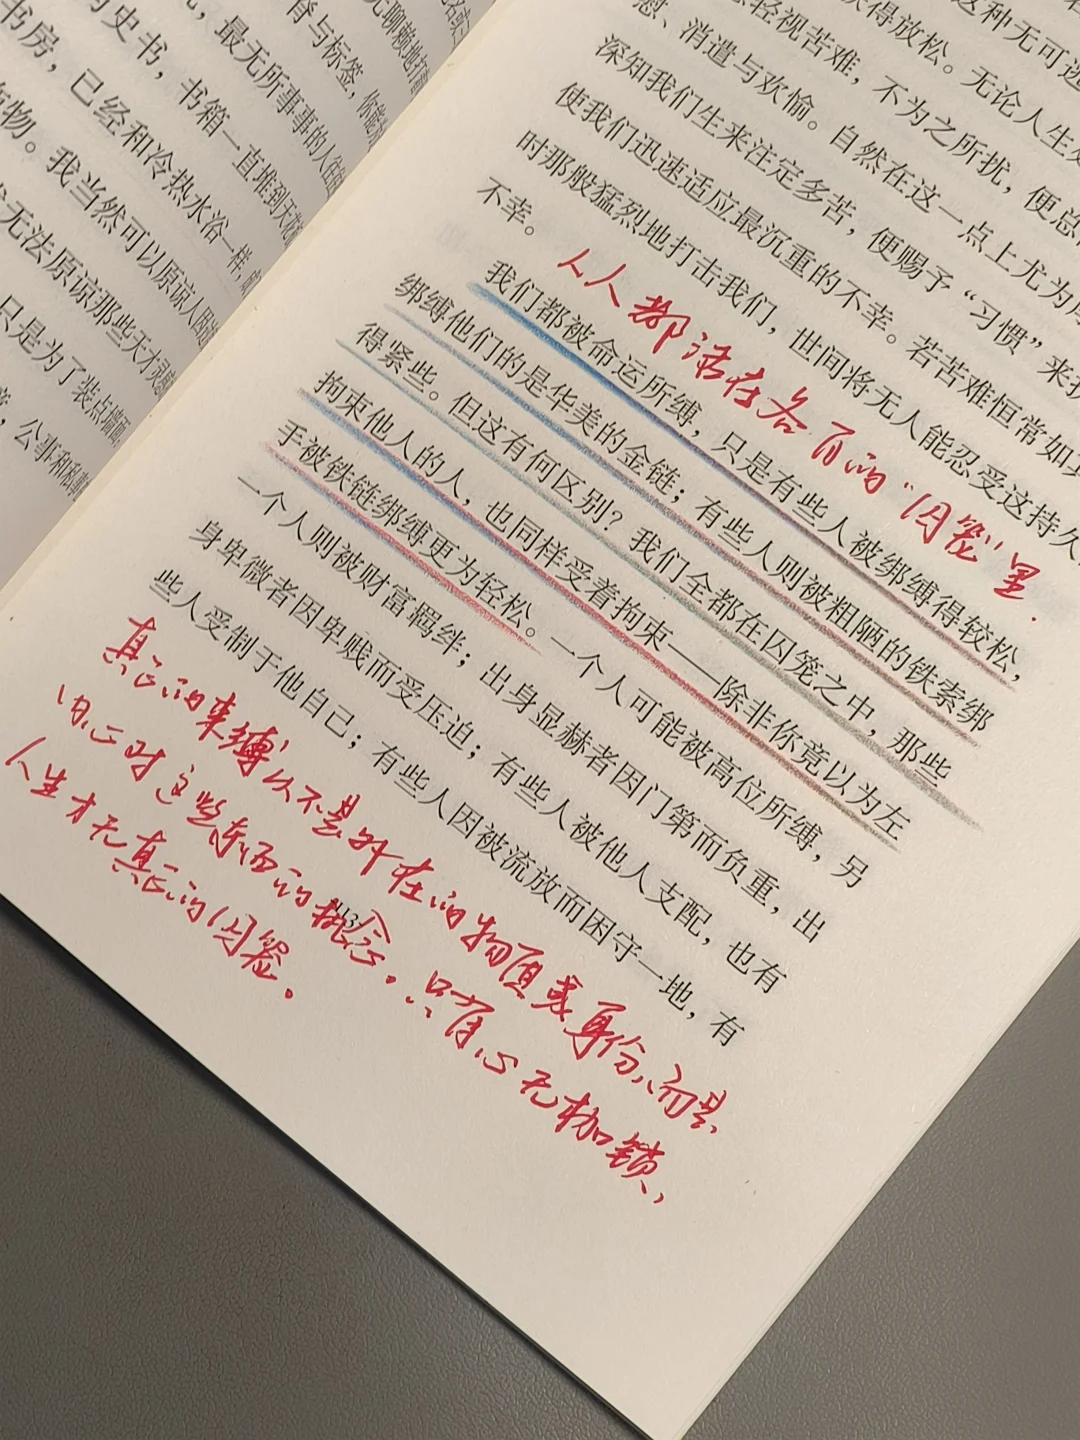 史书，书箱一直堆到天花
书房，已经和冷热水浴一样，
物。我当然可以原谅人因
无法原谅那些天才
只是为了装点墙面
，最无所事事的人
脊与标签，
获得放松。无论人生
轻视苦难，不为之所扰，便总
慰、消遣与欢愉。自然在这一点上尤为
深知我们生来注定多苦，便赐予“习惯”来
使我们迅速适应最沉重的不幸。若苦难恒常如
时那般猛烈地打击我们，世间将无人能忍受这持久
不幸。
人人都活在各自的“囚笼”里.
我们都被命运所缚，只是有些人被绑缚得较松，
绑缚他们的是华美的金链；有些人则被粗陋的铁索绑
得紧些。但这有何区别？我们全都在囚笼之中，那些
拘束他人的人，也同样受着拘束——除非你竟以为左
手被铁链绑缚更为轻松。一个人可能被高位所缚，另
一个人则被财富羁绊；出身显赫者因门第而负重，出
身卑微者因卑贱而受压迫；有些人被他人支配，也有
些人受制于他自己；有些人因被流放而困守一地，有
113
真正的束缚从不是外在的物质或身份，而是
内心对这些东西的概念。只有心无枷锁，
人生才无真正的囚笼。